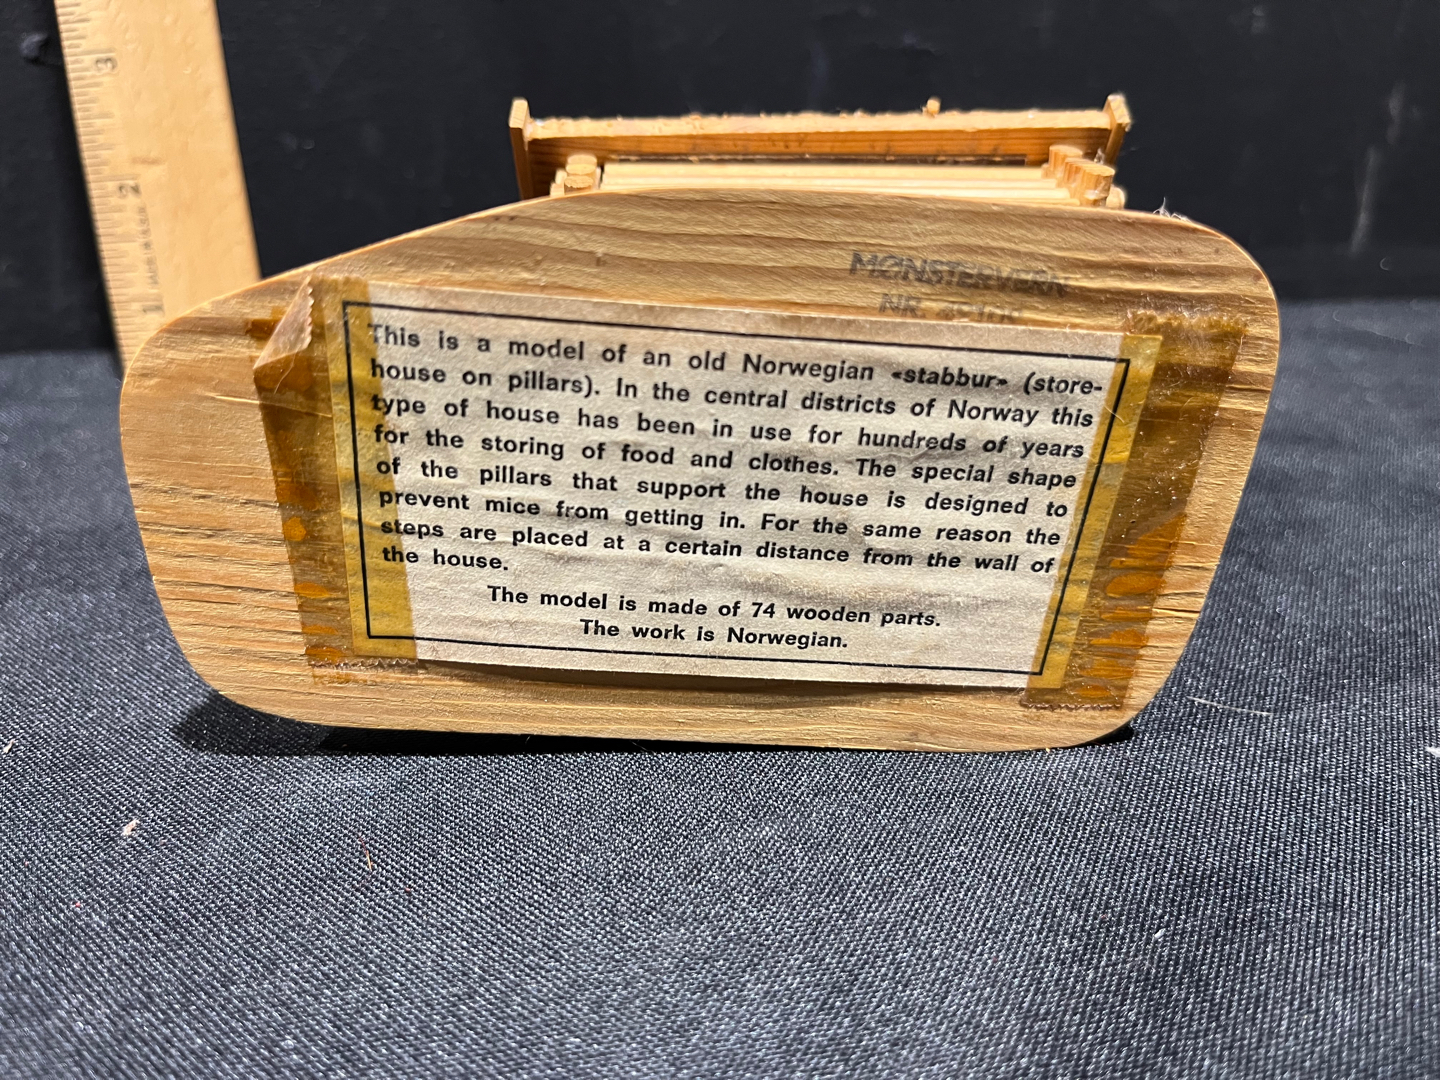 3
2
1
MØNSTERVERN
NR.
This is a model of an old Norwegian «stabbur» (store-
house on pillars). In the central districts of Norway this
type of house has been in use for hundreds of years
for the storing of food and clothes. The special shape
of the pillars that support the house is designed to
prevent mice from getting in. For the same reason the
steps are placed at a certain distance from the wall of
the house.
The model is made of 74 wooden parts.
The work is Norwegian.